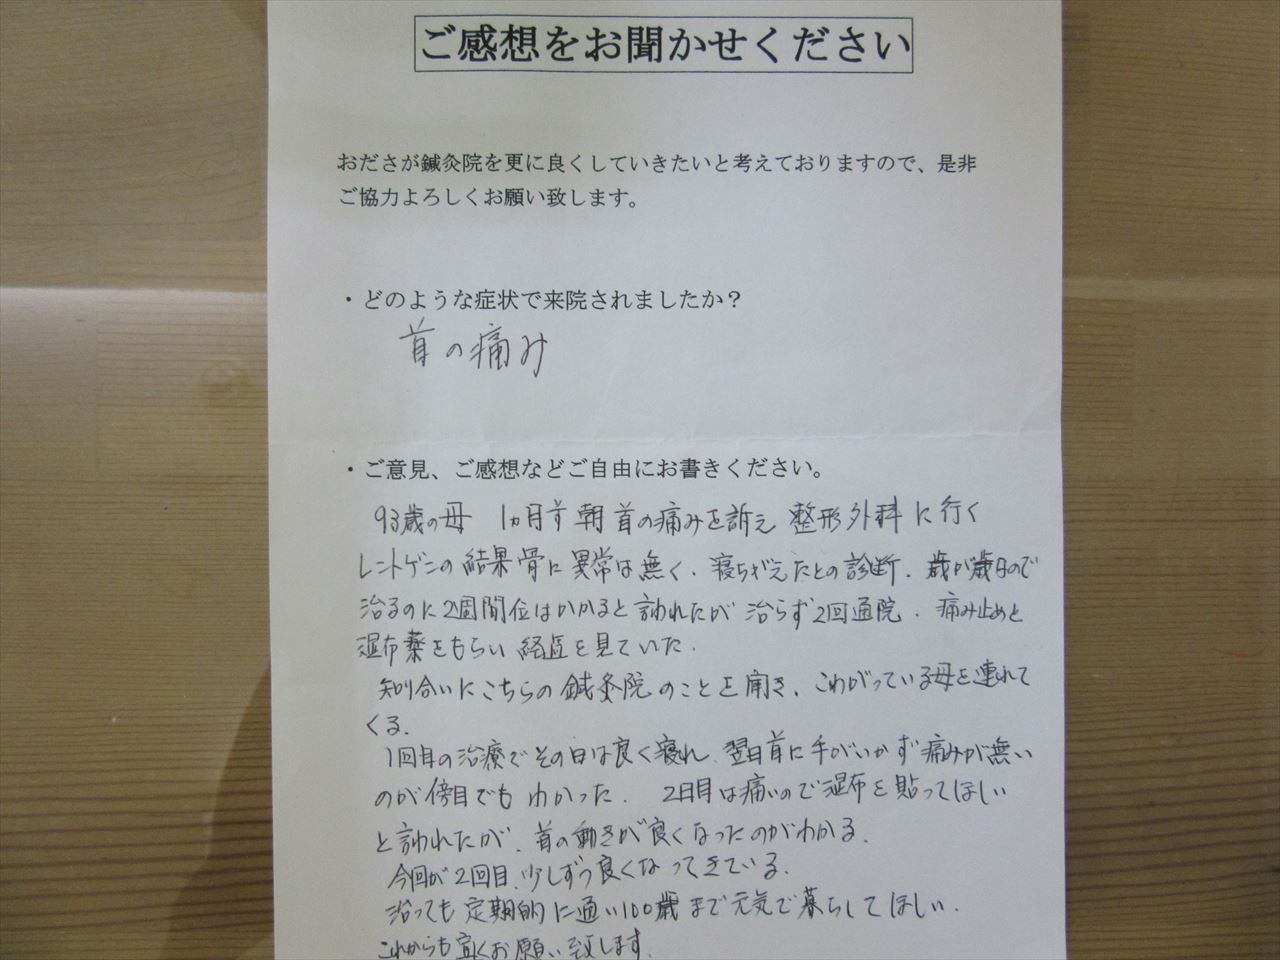 ご感想をお聞かせください
おださが鍼灸院を更に良くしていきたいと考えておりますので、是非
ご協力よろしくお願い致します。
・どのような症状で来院されましたか？
首の痛み
・ご意見、ご感想などご自由にお書きください。
93歳の母 1ヵ月前朝首の痛みを訴え 整形外科に行く
レントゲンの結果骨に異常は無く、寝ちがえたとの診断、歳が歳なので
治るのに2週間位はかかると言われたが 治らず2回通院、痛み止めと
湿布薬をもらい 経過を見ていた。
知り合いにこちらの鍼灸院のことを聞き、こわがっている母を連れて
くる。
1回目の治療でその日は良く寝れ、翌日首に手がいかず痛みが無い
のが傍目でもわかった。 2日目は痛いので湿布を貼ってほしい
と言われたが、首の動きが良くなったのがわかる。
今回が2回目、少しずつ良くなってきている。
治っても定期的に通い100歳まで元気で暮らしてほしい。
これからも宜くお願い致します。